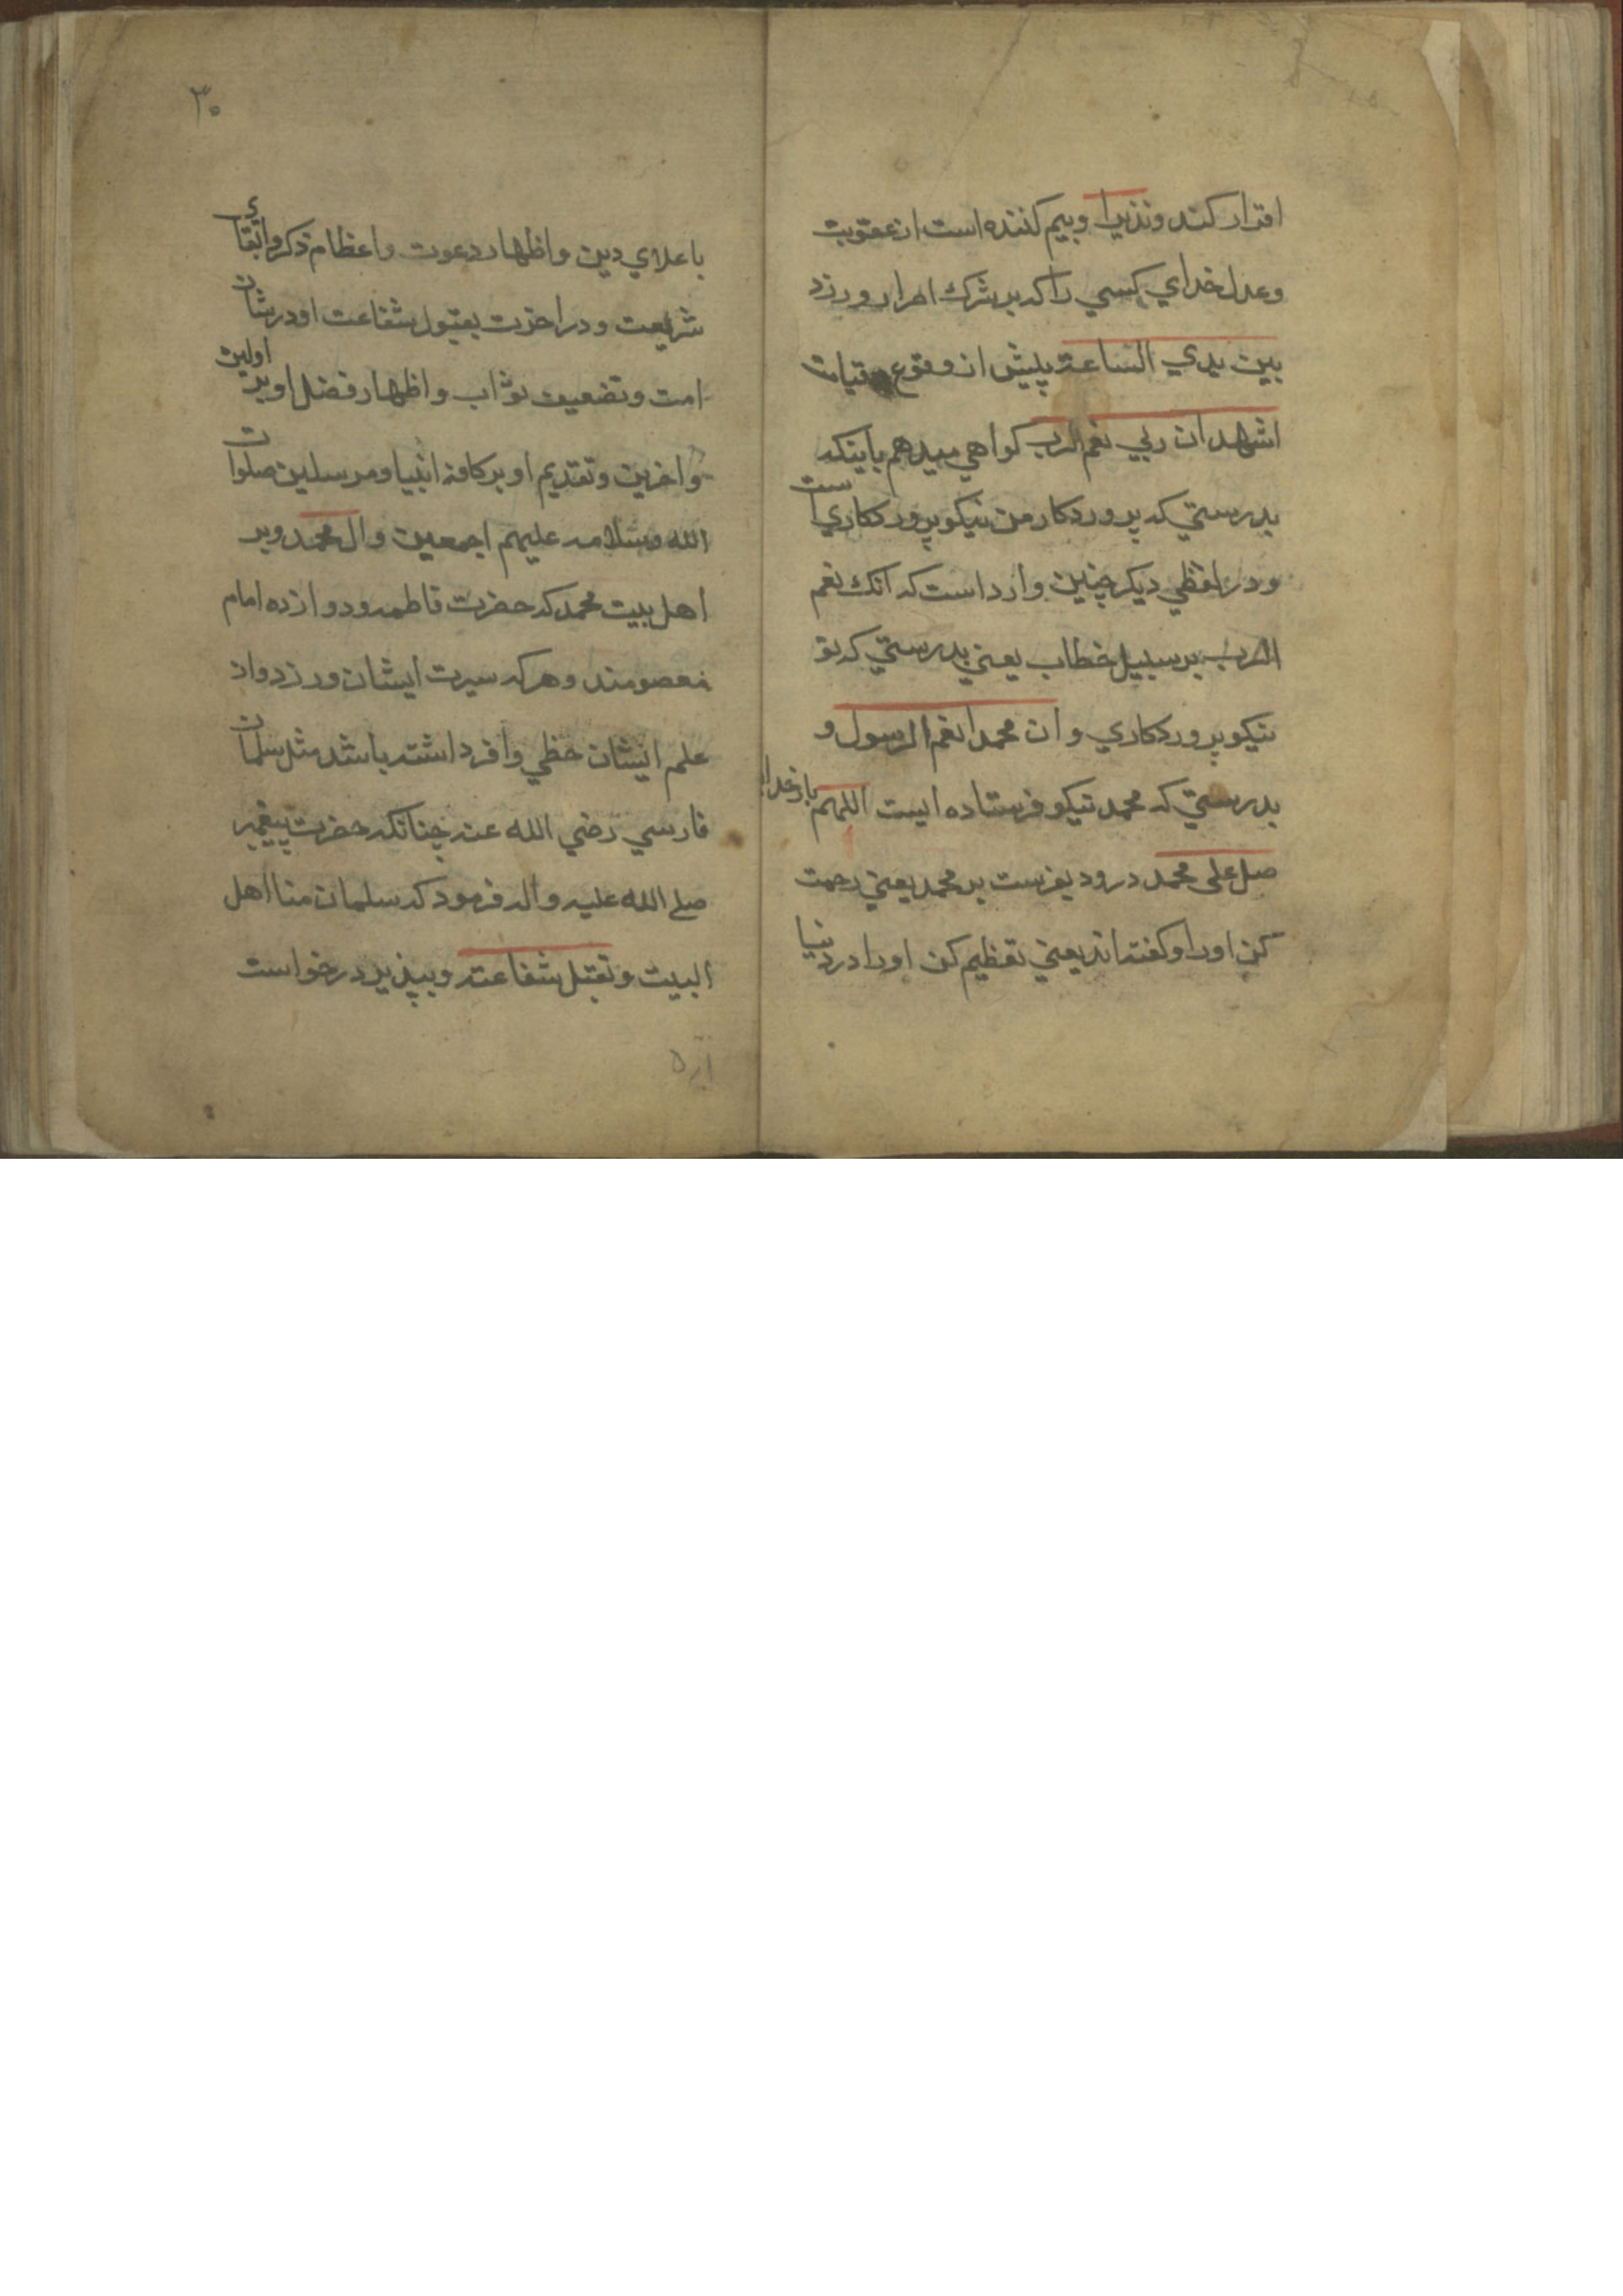 اقرار کند ونذیرا وبیم کننده است از عقوبت
وعدل خدای کسی را که بر شرک اصرار ورزد
بین یدی الساعة پیش از وقوع قیامت
اشهد ان ربی نعم الرب کواهی میدهم باینکه
بدرستی که پروردکار من نیکو پروردکاری است
ودر لفظی دیکر چنین وارد است که انک نعم
الرب بر سبیل خطاب یعنی بدرستی که تو
نیکو پروردکاری وان محمدا نعم الرسول و
بدرستی که محمد نیکو فرستاده ایست اللهم بار خدایا
صل علی محمد درود بفرست بر محمد یعنی رحمت
کن اورا وکفته اند یعنی تعظیم کن اورا در دنیا
۳۰
باعلای دین واظهار دعوت واعظام ذکر وابقای
شریعت ودر اخرت بقبول شفاعت او در شان
امت وتضعیف ثواب واظهار فضل او بر اولین
واخرین وتقدیم او بر کافه انبیا ومرسلین صلوات
الله وسلامه علیهم اجمعین وال محمد وبر
اهل بیت محمد که حضرت فاطمه ودوازده امام
معصومند وهر که سیرت ایشان ورزد واز
علم ایشان حظی وافر داشته باشد مثل سلمان
فارسی رضی الله عنه چنانکه حضرت پیغمبر
صلی الله علیه واله فرمود که سلمان منا اهل
البیت وتقبل شفاعته وبپذیر درخواست